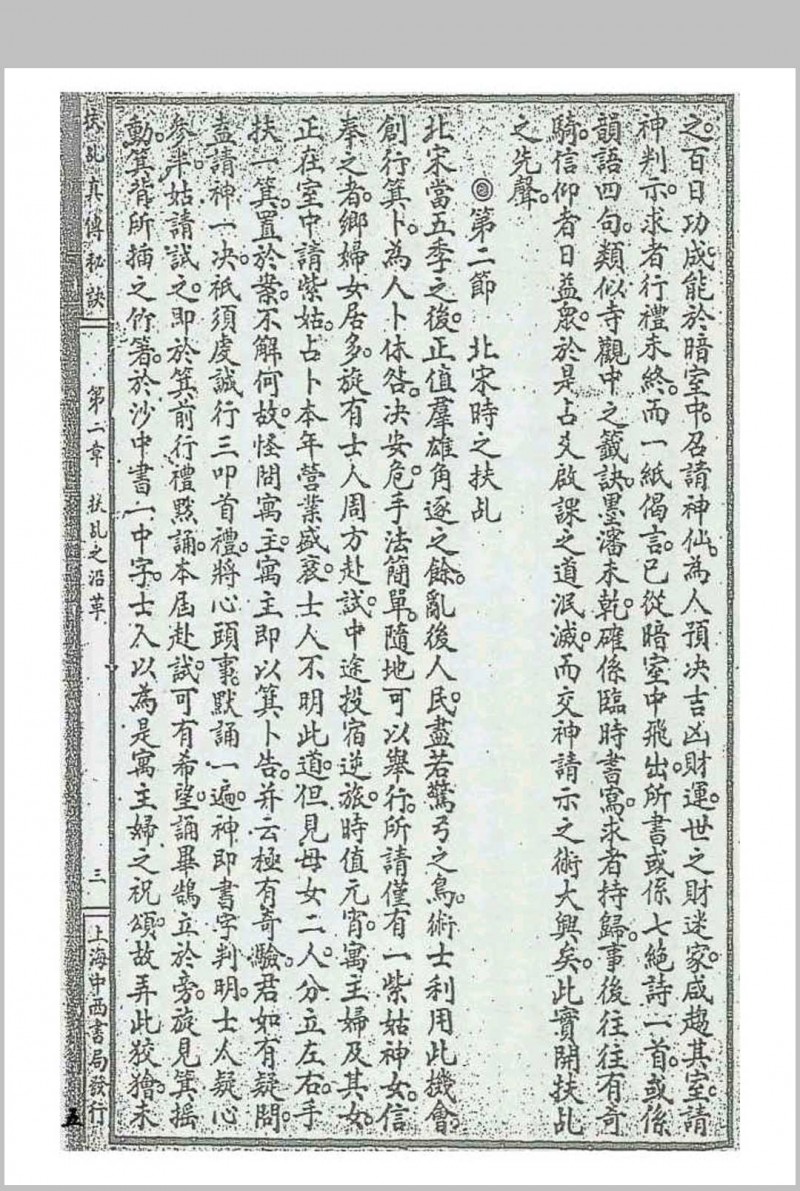 之。百日功成。能於暗室中。召請神仙。為人預決吉凶財運。世之財迷家。咸趨其室。請
神判示。求者行禮未終。而一紙偈言。已從暗室中飛出。所書或係七絕詩一首。或係
韻語四句。類似寺觀中之籤訣。墨瀋未乾。確係臨時書寫。求者持歸。事後往往有奇
騐。信仰者日益眾。於是占爻啟課之道泯滅。而交神請示之術大興矣。此實開扶乩
之先聲。
◎第二節　北宋時之扶乩
北宋當五季之後。正值羣雄角逐之餘。亂後人民。盡若驚弓之鳥。術士利用此機會。
創行箕卜。為人卜休咎。決安危。手法簡單。隨地可以舉行。所請僅有一紫姑神女。信
奉之者。鄉婦女居多。旋有士人周方赴試。中途投宿逆旅。時值元宵。寓主婦及其女。
正在室中請紫姑。占卜本年營業盛衰。士人不明此道。但見母女二人。分立左右。手
扶一箕。置於案。不解何故。怪問寓主。寓主即以箕卜告。并云極有奇驗。君如有疑問。
盍請神一決。祇須虔誠行三叩首禮。將心頭事。默誦一遍。神即書字判明。士人疑心
參半。姑請試之。即於箕前行禮默誦。本屆赴試。可有希望。誦畢鵠立於旁。旋見箕搖
動。箕背所插之竹箸。於沙中書一中字。士人以為是寓主婦之祝頌。故弄此狡獪。未
扶乩真傳秘訣
第二章　扶乩之沿革
三
上海中西書局發行
五